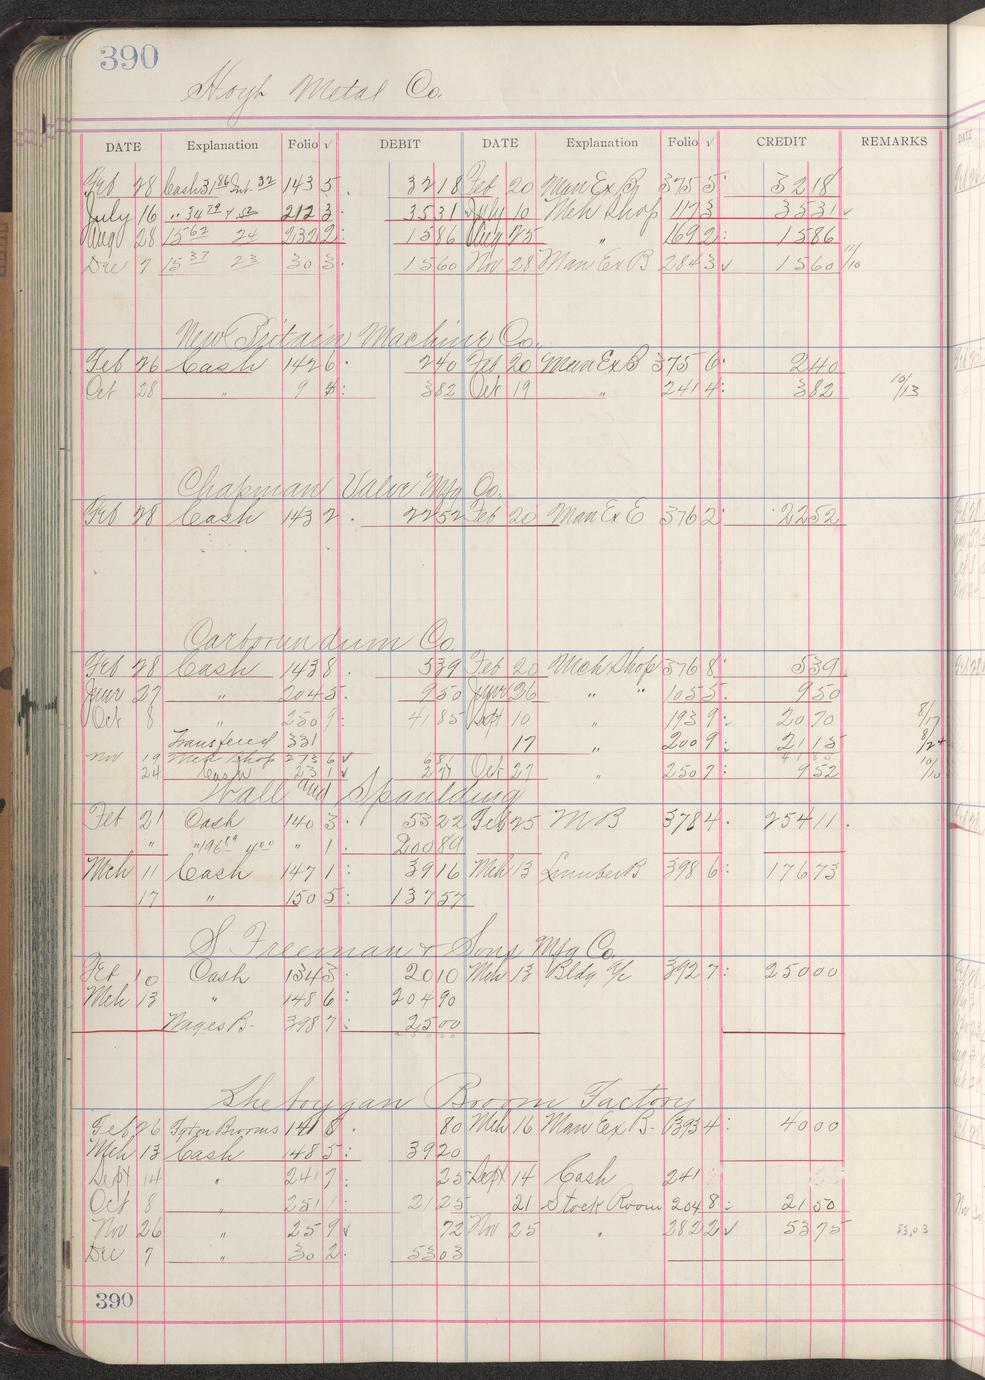 390
Hoyt Metal Co.
DATE Explanation Folio √ DEBIT DATE Explanation Folio √ CREDIT REMARKS
Feb 28 Cash 31 86 Int. 32 143 5 . 32 18 Feb 20 Man Ex B 375 5 32 18
July 16 " 34 79 + 52 212 3 . 35 31 July 10 Mch Shop 117 3 35 31 √
Aug 28 15 62 24 232 2 : 15 86 Aug 25 " 169 2 : 15 86
Dec 7 15 37 23 30 3 . 15 60 Nov 28 Man Ex B 284 3 √ 15 60 11/10
New Britain Machine Co.
Feb 26 Cash 142 6 . 2 40 Feb 20 Man Ex B 375 6 . 2 40
Oct 28 " 9 : 3 82 Oct 19 " 241 4 : 3 82 10/13
Chapman Valve Mfg Co.
Feb 28 Cash 143 2 . 22 52 Feb 20 Man Ex E 376 2 22 52
Carborundum Co.
Feb 28 Cash 143 8 . 5 39 Feb 20 Mch Shop 376 8 5 39
June 27 " 204 5 . 9 50 June 26 " " 105 5 . 9 50
Oct 8 " 250 9 : 41 85 Sept 10 " 193 9 : 20 70 8/17
Transfered 331 17 " 200 9 : 21 15 8/24
Nov 19 Mch Shop 273 6 √ 6 81 41 85
24 Cash 23 1 √ 2 71 Oct 27 " 250 7 : 9 52 10/10
Wall and Spaulding
Feb 21 Cash 140 3 . 53 22 Feb 25 M B 378 4 . 254 11 .
" " 196 89 4 00 " 1 . 200 89
Mch 11 Cash 147 1 : 39 16 Mch 13 Lumber B 398 6 : 176 73
17 " 150 5 : 137 57
S Freeman & Sons Mfg Co.
Feb 10 Cash 134 3 20 10 Mch 13 Bldg a/c 392 7 : 250 00
Mch 13 " 148 6 : 204 90
Wages B. 398 7 : 25 00
Sheboygan Broom Factory
Feb 26 Brooms 141 8 . 80 Mch 16 Man Ex B. 393 4 : 40 00
Mch 13 Cash 148 5 : 39 20
Sept 14 " 241 7 : 25 Sept 14 Cash 241
Oct 8 " 251 1 : 21 25 21 Stock Room 204 8 : 21 50
Nov 26 " 259 √ 72 Nov 25 " 282 2 √ 53 75 53.03
Dec 7 " 30 2 . 53 03
390